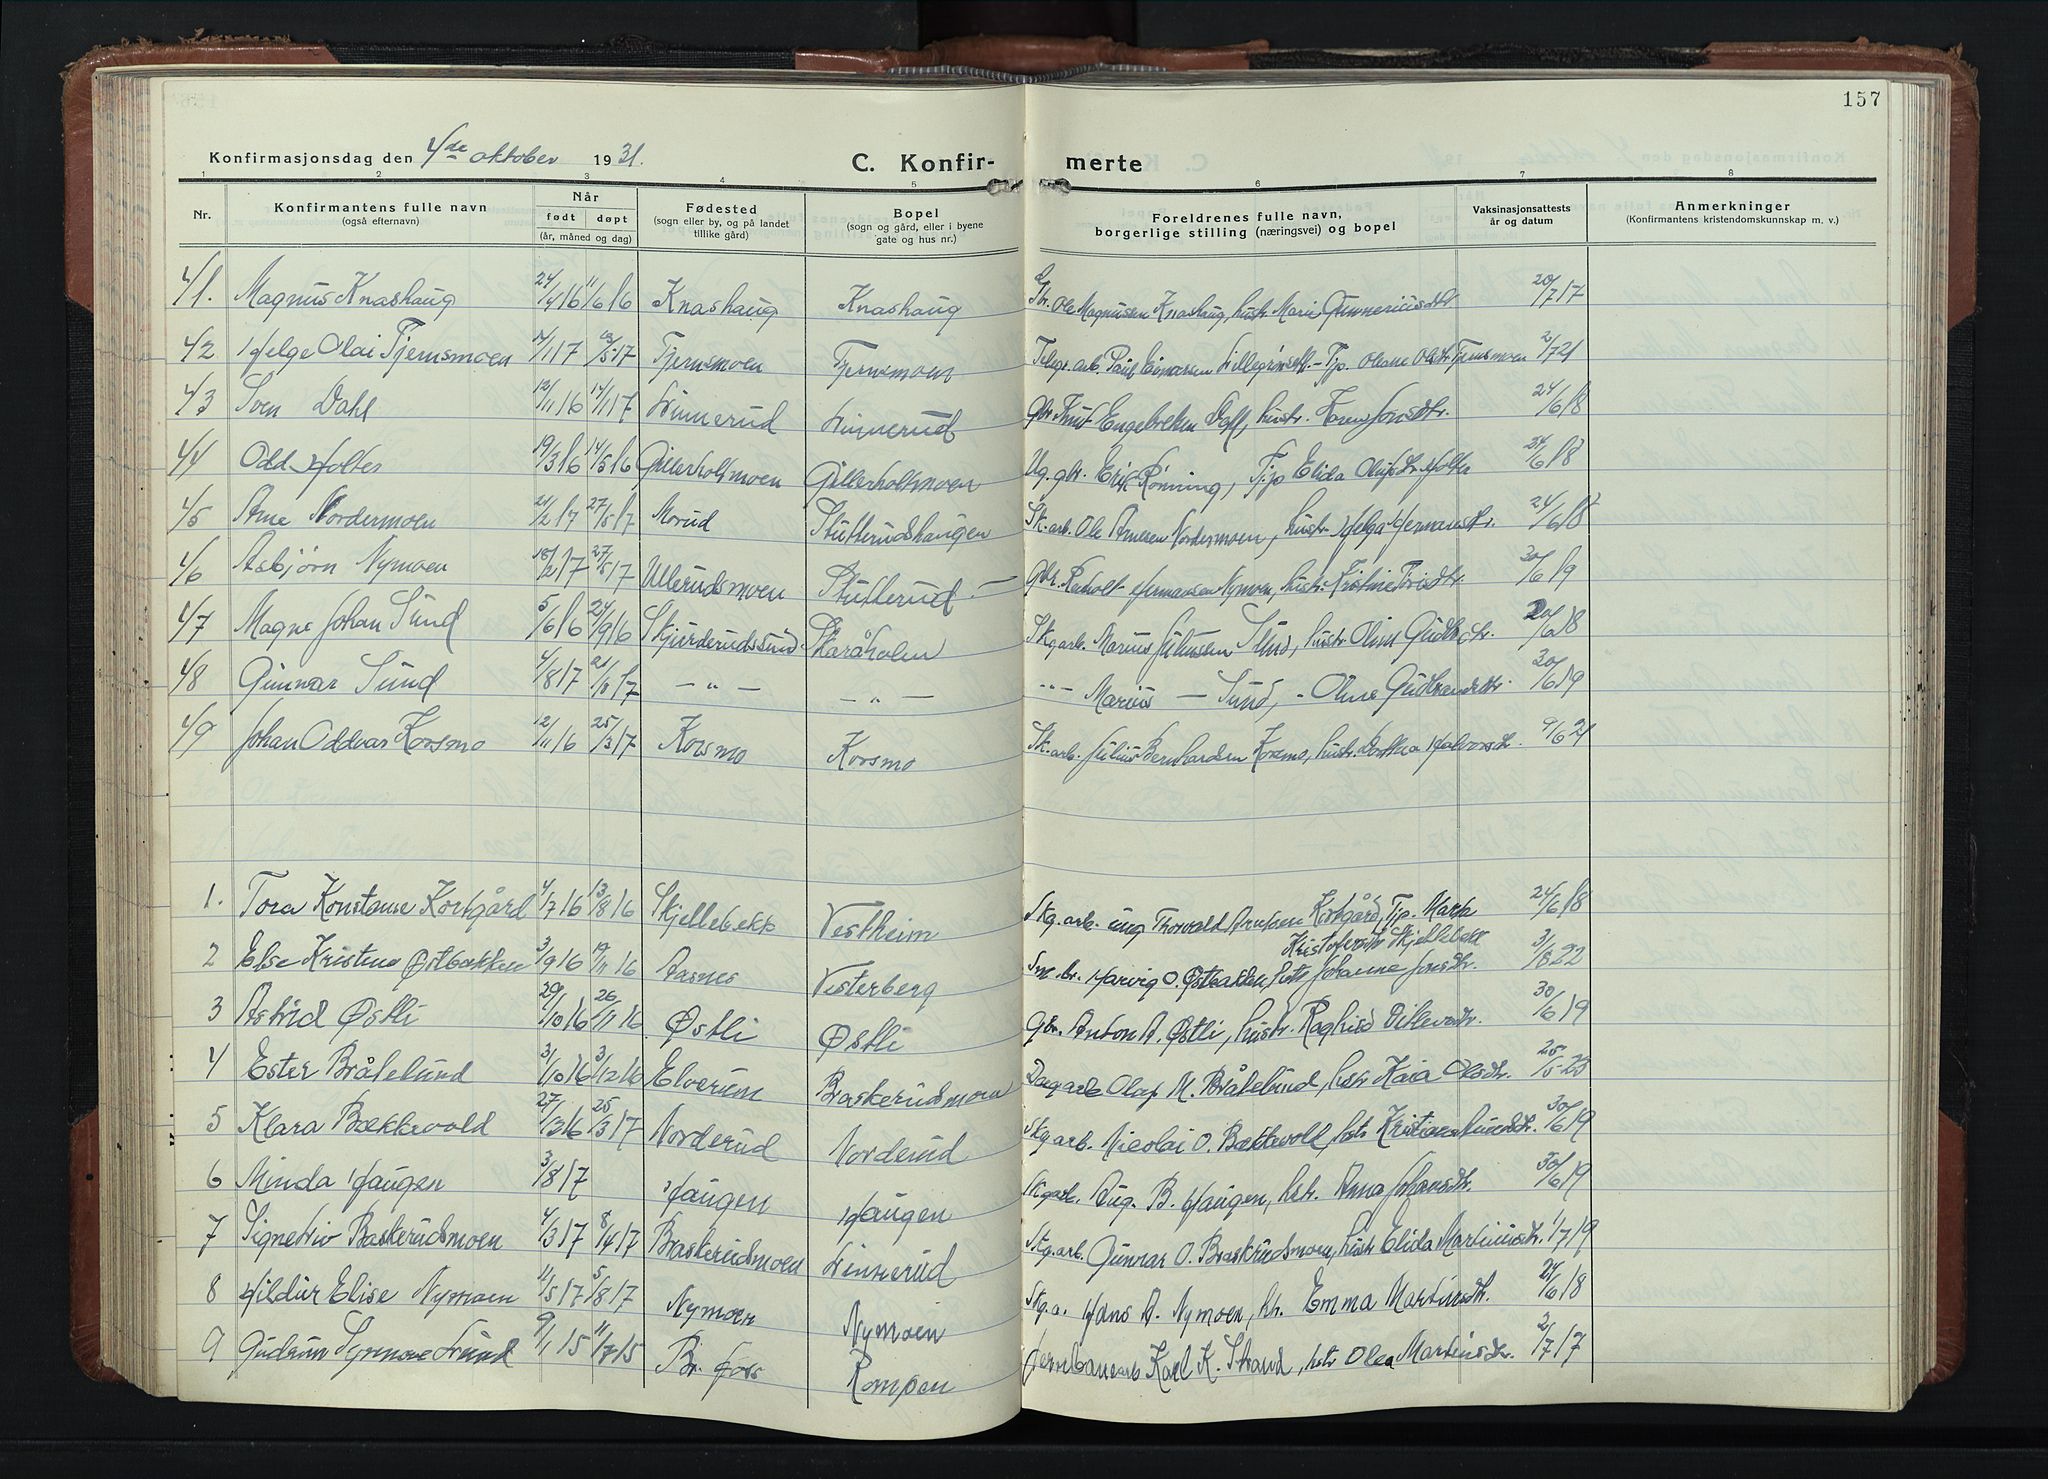 157
Konfirmasjonsdag den 4de oktober 1931.
C. Konfir- merte
1 2 3 4 5 6 7 8
Nr.
Konfirmantens fulle navn
(også efternavn)
Når
født døpt
(år, måned og dag)
Fødested
(sogn eller by, og på landet
tillike gård)
Bopel
(sogn og gård, eller i byene
gate og hus nr.)
Foreldrenes fulle navn,
borgerlige stilling (næringsvei) og bopel
Vaksinasjonsattests
år og datum
Anmerkninger
(Konfirmantens kristendomskunnskap m. v.)
41. Magnus Knashaug 24/4 16 11/6 16 Knashaug Knashaug Gbr. Ole Magnussen Knashaug, hustr. Marie Gunneriusdtr 20/7 17
42 Helge Olai Tjernsmoen 17 /5 17 Tjernsmoen Tjernsmoen Telegr. arb. Paul Einarsen - Tjp. Oleane Olsdtr Tjernsmoen 2/7 21
43 Sven Dahl 12/11 16 14/1 17 Linnerud Linnerud Gbr. Knut Engebretsen Dahl, hustr. Karen Jonsdtr. 24/6 18
44 Odd Holter 19/3 16 14/5 16 Gillerholtmoen Gillerholtmoen Ug. gbr. Erik Rønning, Tjp Elida Olufsdtr Holter 24/6 18
45 Arne Nordermoen 21/2 17 27/5 17 Morud Stutterudshaugen Sk. arb. Ole Arnesen Nordermoen, hustr. Helga Hermansdtr. 24/6 18
46 Asbjørn Nymoen 18/2 17 27/5 17 Ullerudsmoen Stutterud - Gbr. Reinholt Hermansen Nymoen, hustr. Kristine 30/6 19
47 Magne Johan Sund 5/6 16 24/9 16 Skjurderudssund Skaråholen Skgarb. Marius Juliussen Sund, hustr Oline Gudbrdtr. 20/6 18
48 Gunnar Sund 4/8 17 21/10 17 - " - - " - - " - Marius - Sund, - Oline Gudbrandsdtr. 30/6 19
49 Johan Oddvar Korsmo 12/11 16 25/3 17 Korsmo Korsmo Sk. arb. Julius Bernhardsen Korsmo, hustr. Dorthea Halvorsdtr. 9/6 21
1. Tora Konstanse Kortgård 4/7 16 13/8 16 Skjellebekk Vestheim Skg. arb. ung Thorvald Arntsen Kortgård, Tjp. Marta 24/6 18
Kristofersdtr Skjellebekk
2 Else Kristine Østbakken 3/9 16 19/11 16 Aasnes Vesterberg Sm. br. Harvig O. Østbakken, hstr Johanne Jonsdtr. 3/8 22
3 Astrid Østli 29/10 16 26/11 16 Østli Østli Gbr. Anton A. Østli, hustr. Raghild Ditlevsdtr. 30/6 19
4 Ester Bråtelund 3/10 16 3/12 16 Elverum Baskerudsmoen Dagarb Olaf M. Bråtelund, hstr Kaia Olsdtr. 25/5 23
5 Klara Bækkevold 27/ 16 25/3 17 Norderud Norderud Skg arb. Nicolai O. Bækkevold, hstr Kristiane 30/6 19
6 Minda Haugen 3/8 17 Haugen Haugen Skgarb. Aug. B. Haugen, hstr. Anna Johansdtr. 30/6 19
7 Signe Liv Baskerudsmoen 4/3 17 8/4 17 Baskerudsmoen Linnerud Skg. arb. Gunnar O. Baskrudsmoen, hustr Elida Martiniusdtr. 1/7 19
8 Hildur Elise Nymoen 11/5 17 5/8 17 Nymoen Nymoen Skg. a. Hans A. Nymoen, hr. Emma Martinsdtr. 24/6 18
9 Gudrun Synnøve Strand 9/1 15 11/7 15 Br. foss Rompen Jernbanearb Karl K. Strand, hstr Olea Martinsdtr. 2/7 17